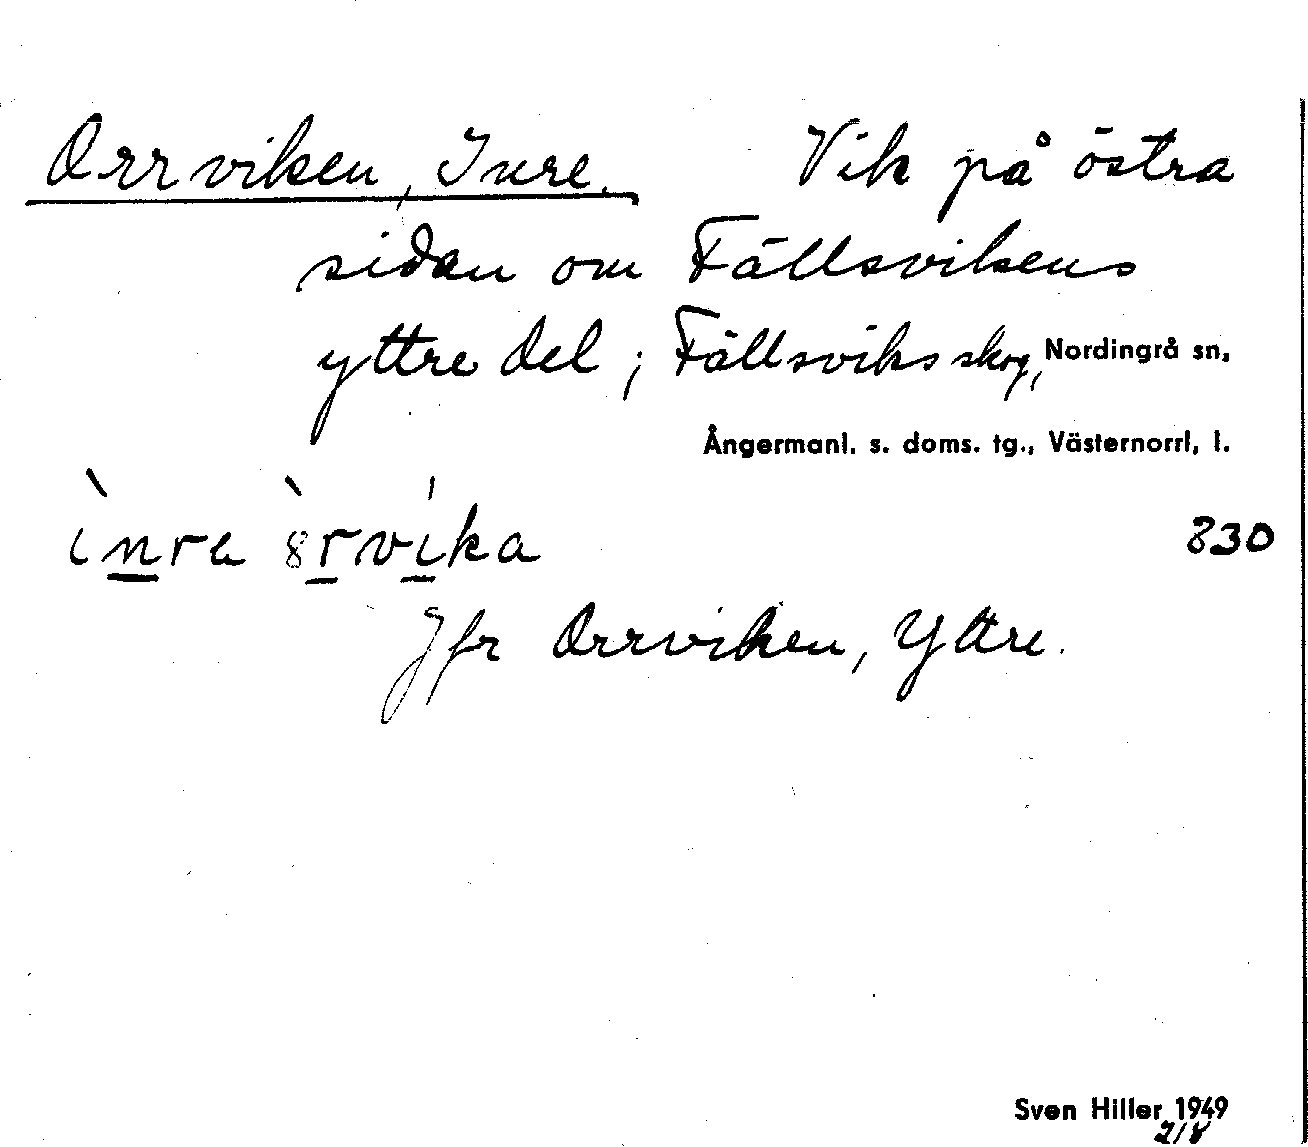 Orrviken, Inre. Vik på östra
sidan om Fällsvikens
yttre del; Fällsviks skog, Nordingrå sn,
Ångermanl. s. doms. tg., Västernorrl. l.
ı̀nra 8̀rvíka 830
Jfr Orrviken, Yttre.
Sven Hiller 1949
2/8